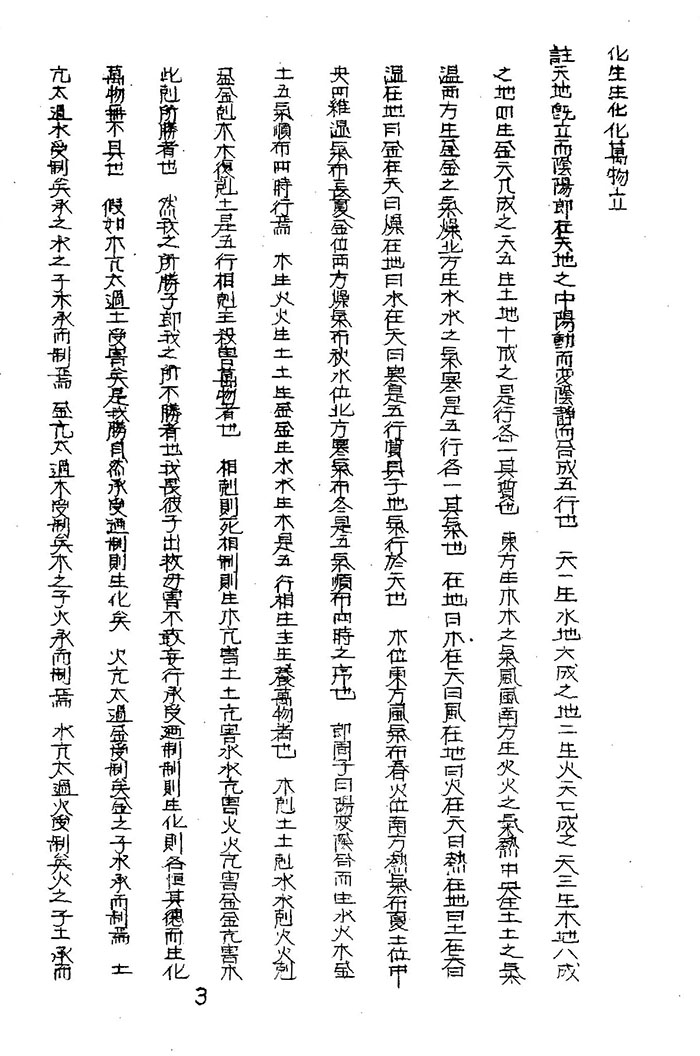 化生生化化萬物立
註天地既立而陰陽即在天地之中陽動而变陰静而合成五行也 天一生水地六成之地二生火天七成之天三生木地八成
之地四生金天九成之天五生土地十成之是行各一其質也 東方生木木之氣風南方生火火之氣熱中央生土土之氣
温西方生金金之氣燥北方生水水之氣寒是五行各一其氣也 在地曰木在天曰風在地曰火在天曰熱在地曰土在天曰
温在地曰金在天曰燥在地曰水在天曰寒是五行質具于地氣行於天也 木位東方風氣布春火位南方熱氣布夏土位中
央四維温氣布長夏金位西方燥氣布秋水位北方寒氣布冬是五氣順布四時之序也 即周子曰陽变陰合而生水火木金
土五氣順布四時行焉 木生火火生土土生金金生水水生木是五行相生主生養萬物者也 木剋土土剋水水剋火火剋
金金剋木木復剋土是五行相剋主殺害萬物者也 相剋則死相制則生木亢害土土亢害水水亢害火火亢害金金亢害木
此剋所勝者也 然我之所勝子即我之所不勝者也我畏彼子出救母害不敢妄行承受廼制制則生化則各恒其德而生化
萬物無不具也 假如木亢太過土受害矣是我勝自然承受廼制則生化矣 火亢太過金受制矣金之子水承而制焉 土
亢太過水受制矣承之水之子木承而制焉 金亢太過木受制矣木之子火承而制焉 水亢太過火受制矣火之子土承而
3